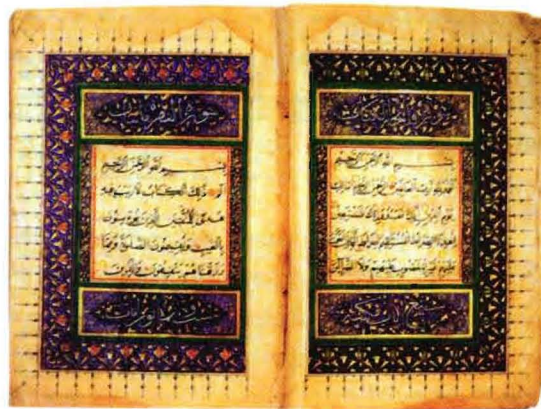 سورة فاتحة الكتاب
بسم الله الرحمن الرحيم
الحمد لله رب العالمين الرحمن الرحيم مالك
يوم الدين اياك نعبد واياك نستعين
اهدنا الصراط المستقيم صراط الذين انعمت
عليهم غير المغضوب عليهم ولا الضالين
سورة البقرة
بسم الله الرحمن الرحيم
الم ذلك الكتاب لا ريب فيه
هدى للمتقين الذين يؤمنون
بالغيب ويقيمون الصلوة ومما
رزقناهم ينفقون والذين